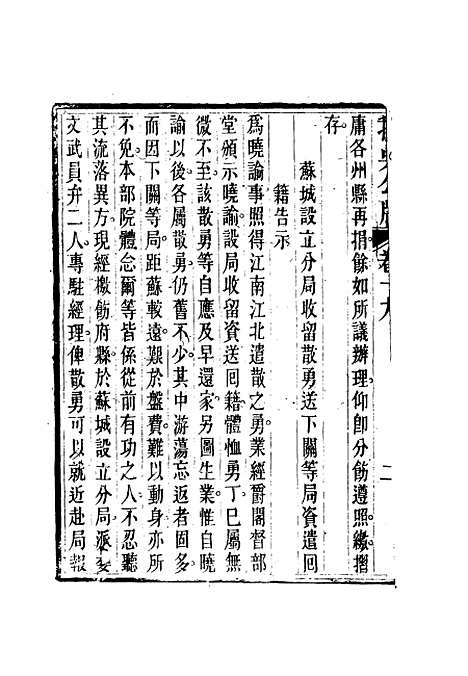 撫吳公牘 卷十九 二
庸各州縣再捐餘如所議辦理仰卽分飭遵照繳摺
存
蘇城設立分局收留散勇送下關等局資遣回
籍告示
爲曉諭事照得江南江北遣散之勇業經爵閣督部
堂頒示曉諭設局收留資送回籍體恤勇丁已屬無
微不至該散勇等自應及早還家另圖生業惟自曉
諭以後各屬散勇仍舊不少其中游蕩忘返者固多
而因下關等局距蘇較遠艱於盤費難以動身亦所
不免本部院體念爾等皆係從前有功之人不忍聽
其流落異方現經檄飭府縣於蘇城設立分局派委
文武員弁二人專駐經理俾散勇可以就近赴局報